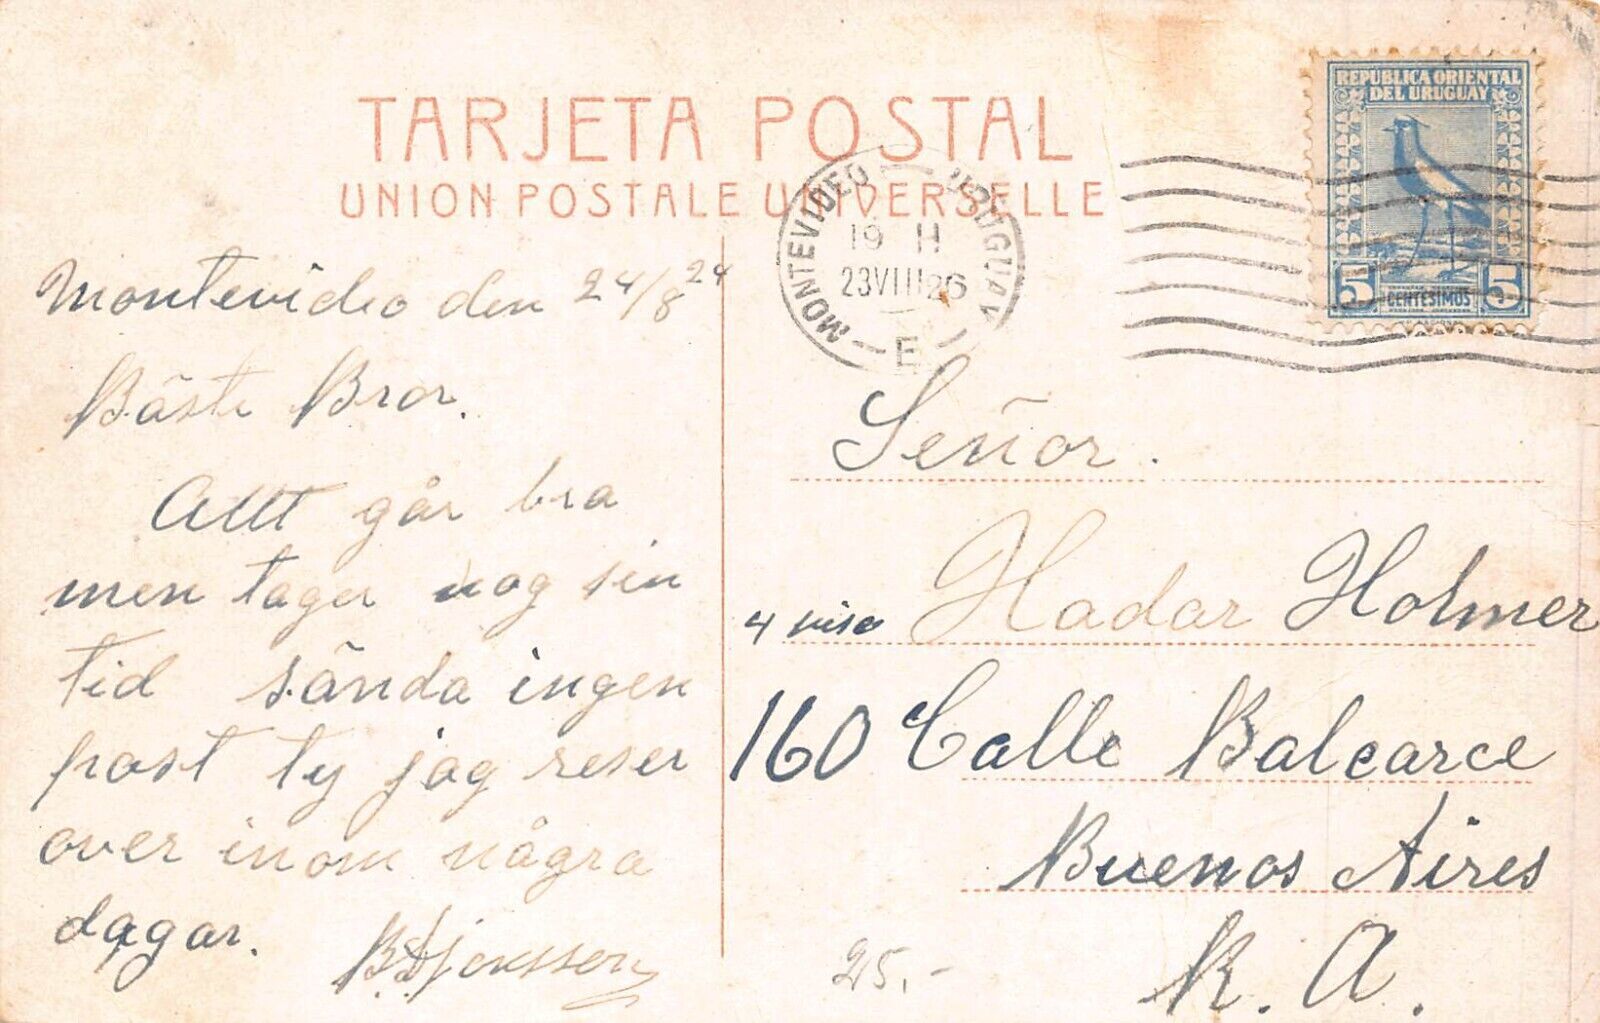 TARJETA POSTAL
UNION POSTALE UNIVERSELLE
REPUBLICA ORIENTAL
DEL URUGUAY
5 CENTESIMOS 5
MONTEVIDEO — URUGUAY
19 H
23 VIII 26
E
Montevideo den 24/8 24
Bäste Bror.
Allt går bra
men tager nog sin
tid sända ingen
post ty jag reser
over inom några
dagar.
Señor.
4 piso Hadar Holmer
160 Calle Balcarce
Buenos Aires
R. A.
25.-